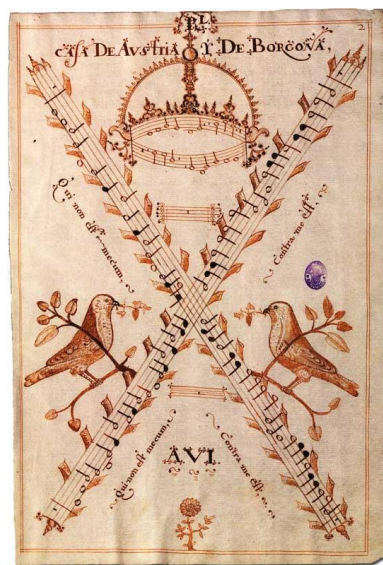 BL
2
CASA DE AVSTRIA I DE BORGOÑA,
Qui non est mecum,
Contra me est,
Qui non est mecum,
Contra me est,
AVI